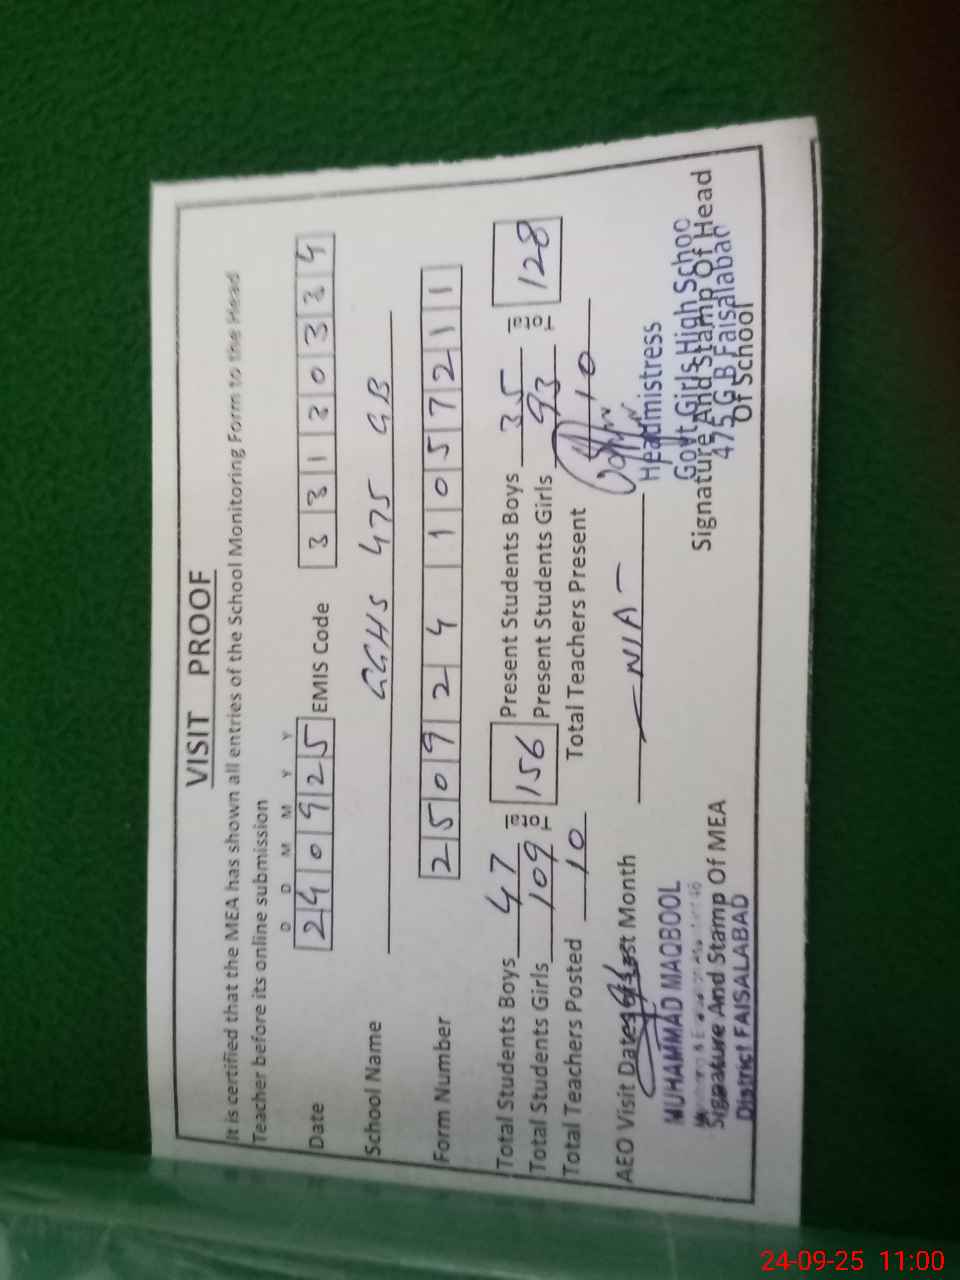 VISIT PROOF
It is certified that the MEA has shown all entries of the School Monitoring Form to the Head
Teacher before its online submission
D D M M Y Y
Date 240925 EMIS Code 33130334
School Name GGHS 475 GB
Form Number 250924 1057211
Total Students Boys 47 Total 156 Present Students Boys 35 Total 128
Total Students Girls 109 Present Students Girls 93
Total Teachers Posted 10 Total Teachers Present 10
AEO Visit Dates Of Last Month — N/A —
MUHAMMAD MAQBOOL
Signature And Stamp Of MEA
District FAISALABAD
Headmistress
Govt Girls High Schoo
Signature And Stamp Of Head
475 G B Faisalabad
Of School
24-09-25 11:00